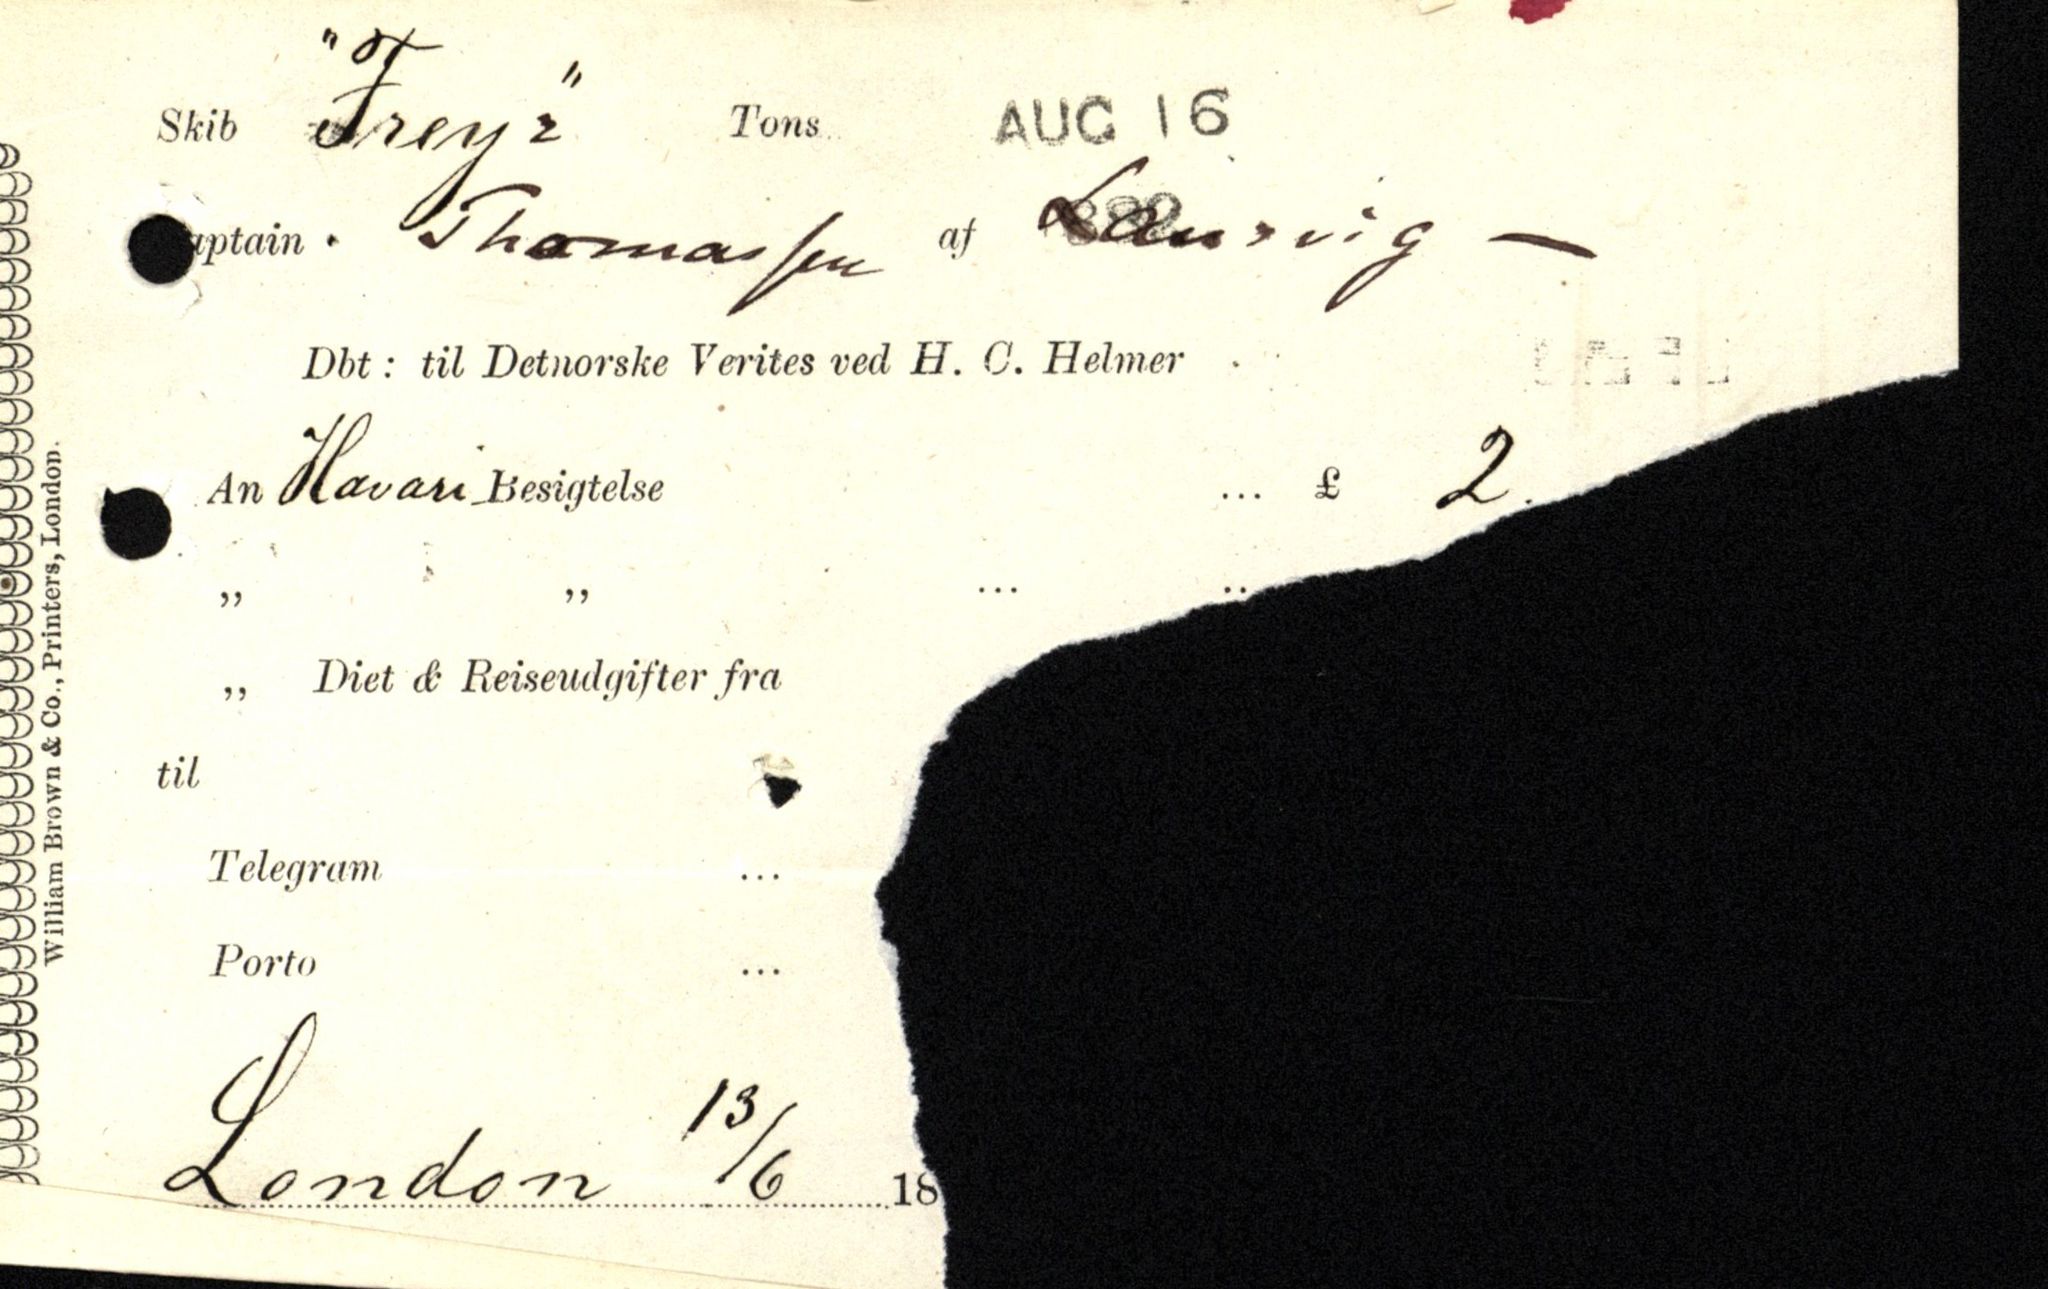 Skib "Freyr" Tons AUG 16
Captain Thomassen af Laurvig —
Dbt: til Detnorske Verites ved H. C. Helmer
An Havari Besigtelse ... £ 2.
„ „ ... ..
„ Diet & Reiseudgifter fra
til
Telegram ...
Porto ...
London 13/6 18
William Brown & Co., Printers, London.